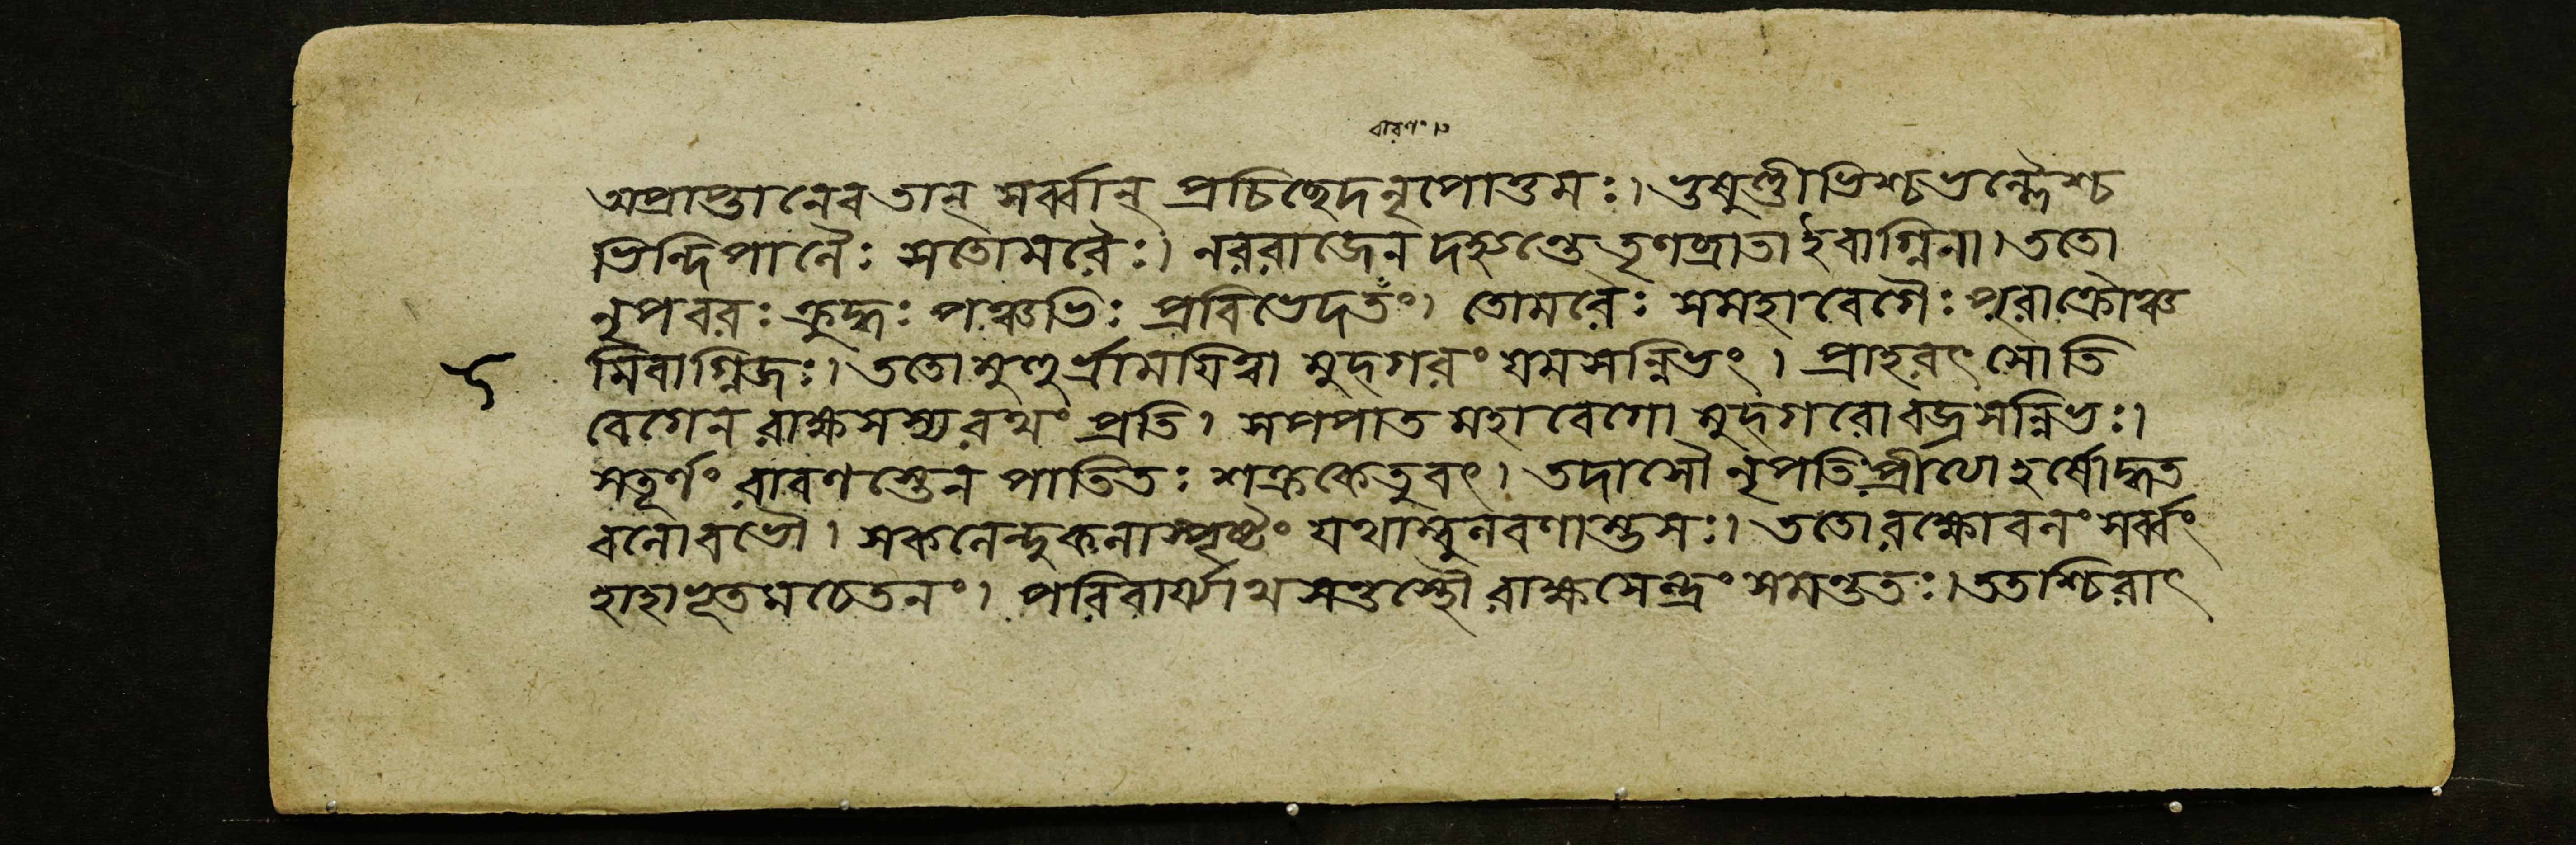 বারণঃ।০
অপ্রাপ্তানেবতান্ সর্ব্বান্ প্রচিচ্ছেদনৃপোত্তমঃ। ভুষুণ্ডীভিশ্চভল্লৈশ্চ
ভিন্দিপালৈঃ সতোমরৈঃ। নররাজেন দহ্যন্তে তৃণব্রাতা ইবাগ্নিনা। ততো
নৃপবরঃ ক্রুদ্ধঃ পঞ্চভিঃ প্রবিভেদতং। তোমরৈঃ সমহাবেগৈঃ পুরাক্রৌঞ্চ
মিবাগ্নিজঃ। ততোমুহুর্ভ্রাময়িত্বা মুদ্গরং যমসন্নিভং। প্রাহরৎ সোতি
বেগেন রাক্ষসস্যরথং প্রতি। সপপাত মহাবেগো মুদ্গরোবজ্রসন্নিভঃ।
সতূর্ণং রাবণস্তেন পাতিতঃ শক্রকেতুবৎ। তদাসৌ নৃপতিপ্রীত্যে হর্ষোদ্ধত
বলোবভৌ। সকলেন্দুকলাস্পৃষ্টং যথাম্বুলবণাম্ভসঃ। ততোরক্ষোবলংসর্ব্বং
হাহাভূতমচেতনং। পরিবার্য্যাথ সণ্তস্থৌ রাক্ষসেন্দ্রং সমন্ততঃ। ততশ্চিরাৎ